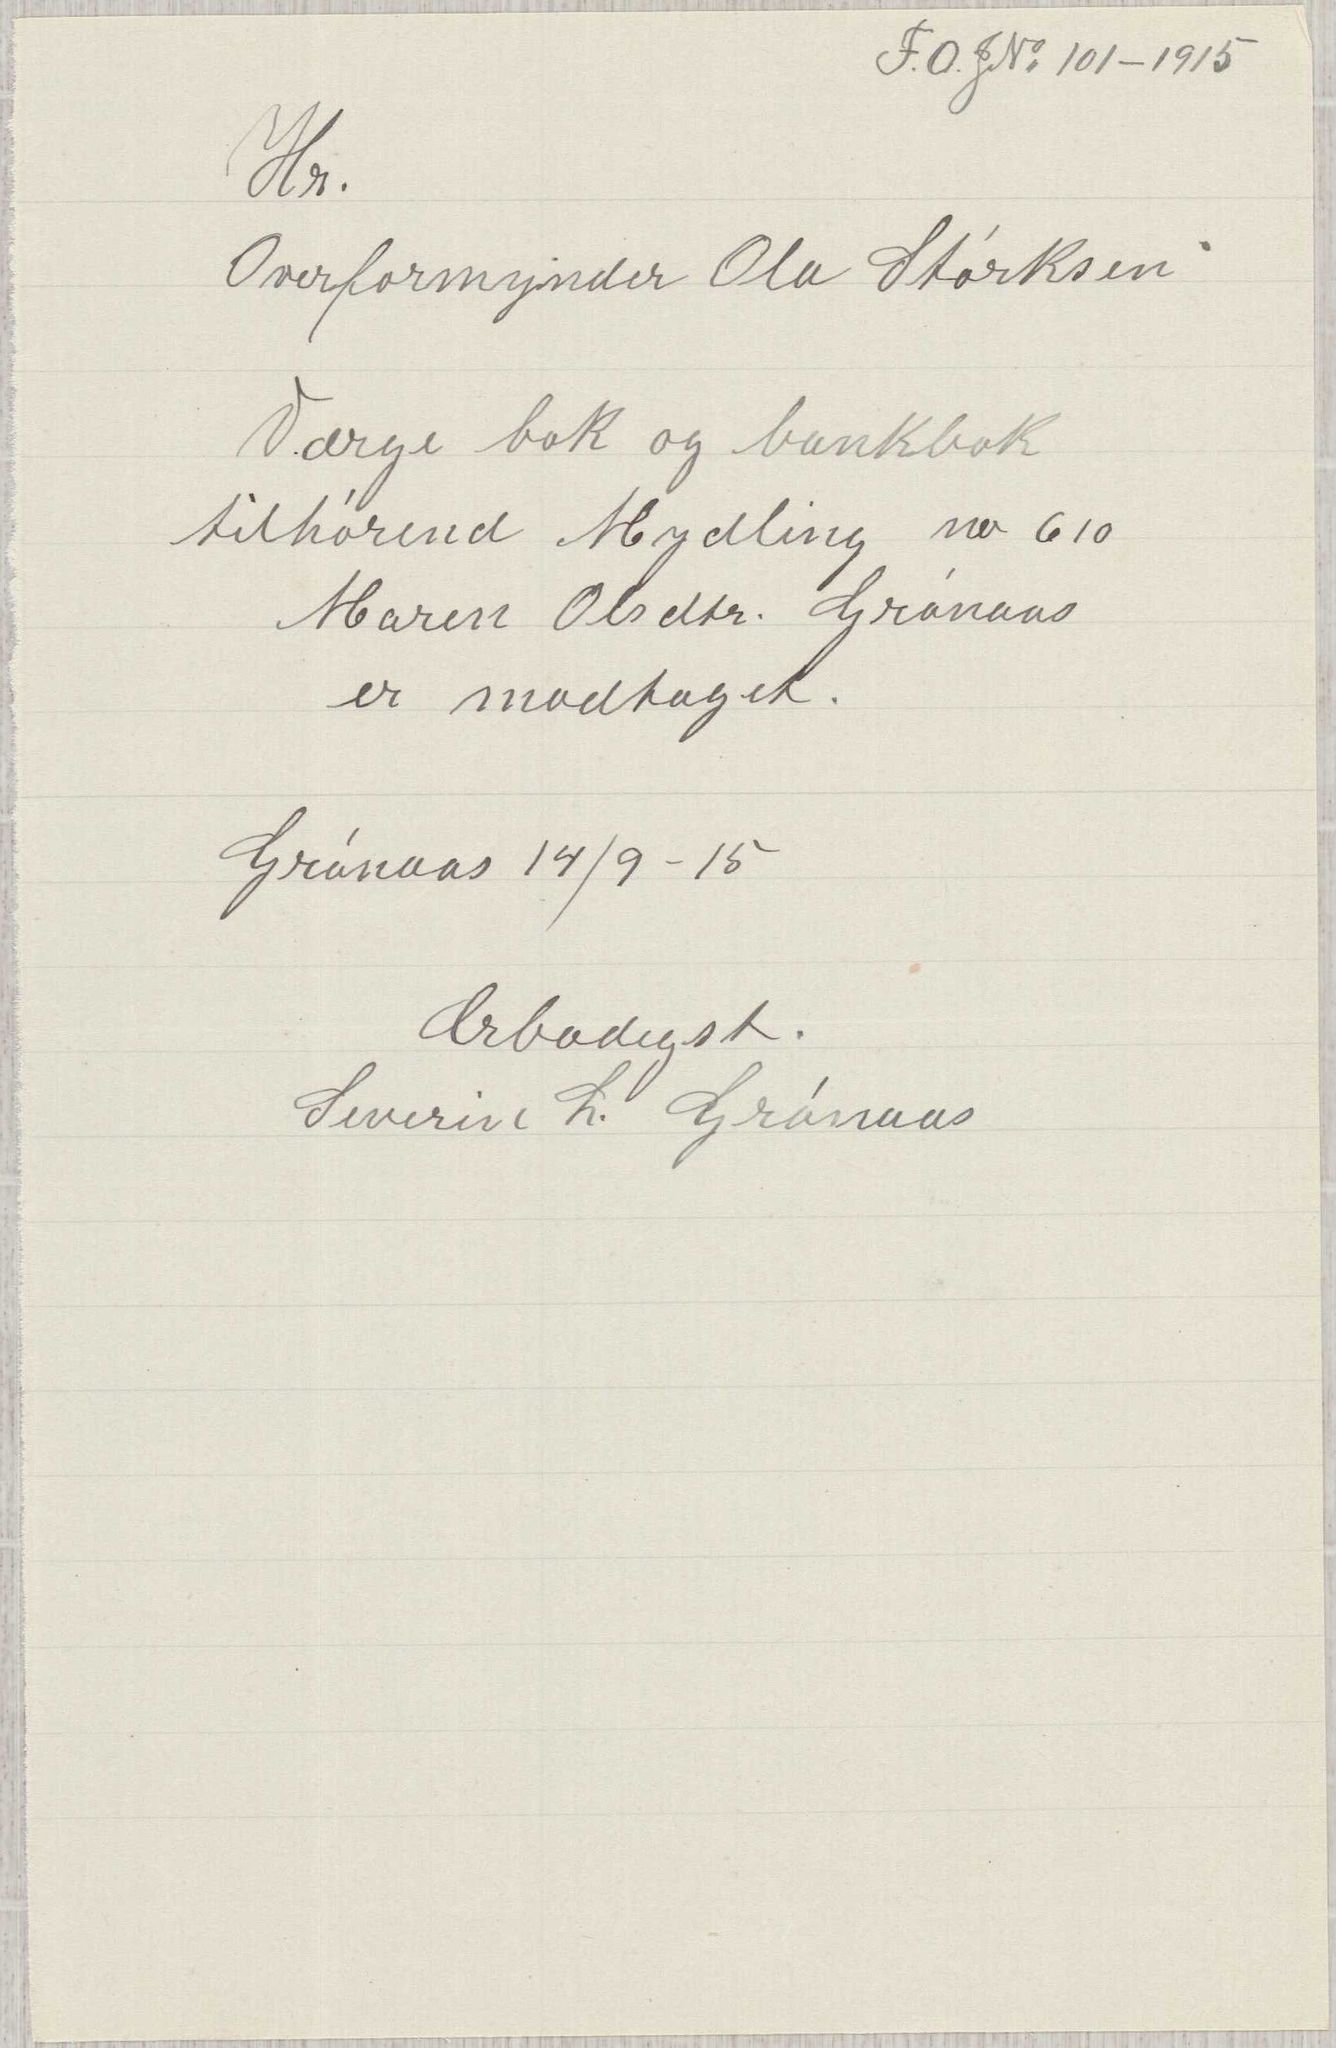 F.O.J№ 101-1915
Hr.
Overformynder Ola Störksen
Værge bok og bankbok
tilhörend Mydling no 610
Maren Olsdtr. Grönaas
er modtaget.
Grönaas 14/9-15
Ærbødigst.
Severin L. Grönaas